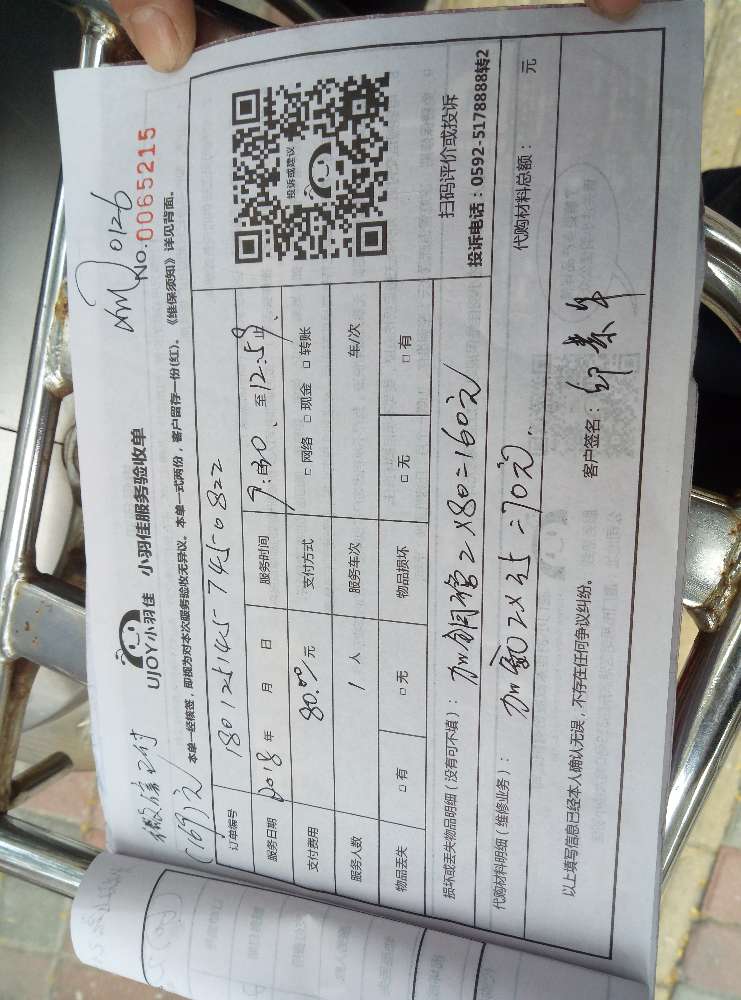 微信已付
(169)元
0126
UJOY小羽佳 小羽佳服务验收单
No.0065215
本单一经核签，即视为对本次服务验收无异议。本单一式两份，客户留存一份(红)。《维保须知》详见背面。
订单编号 180125145-745-0822
服务日期 2018 年 月 日 服务时间 9:30、至 12:59 止、
支付费用 80.00 元 支付方式 □ 网络 □ 现金 □ 转账
服务人数 1 人 服务车次 车/次
物品丢失 □ 有 □ 无 物品损坏 □ 无 □ 有
投诉或建议
扫码评价或投诉
投诉电话：0592-5178888转2
损坏或丢失物品明细（没有可不填）：
2×80=160元
代购材料明细（维修业务）：
2×35=70元.
代购材料总额： 元
以上填写信息已经本人确认无误，不存在任何争议纠纷。
客户签名：